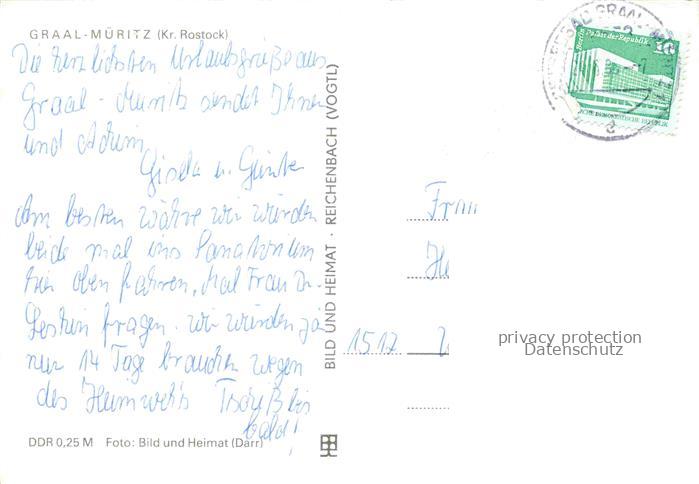 GRAAL-MÜRITZ (Kr. Rostock)
Die herzlichsten Urlaubsgrüße aus
Graal-Müritz sendet Ihnen
und
Gisela u. Günter
Am besten währe wir würden
beide mal ins Sanatorium
hier oben fahren, Mal Frau Dr.
fragen. wir würden ja
nur 14 Tage brauchen wegen
des Heimweh's Tschüß bis
bald!
DDR 0,25 M Foto: Bild und Heimat (Darr)
BILD UND HEIMAT · REICHENBACH (VOGTL)
Berlin Palast der Republik
10
DEUTSCHE DEMOKRATISCHE REPUBLIK
GRAAL-
Frau
1512
privacy protection
Datenschutz